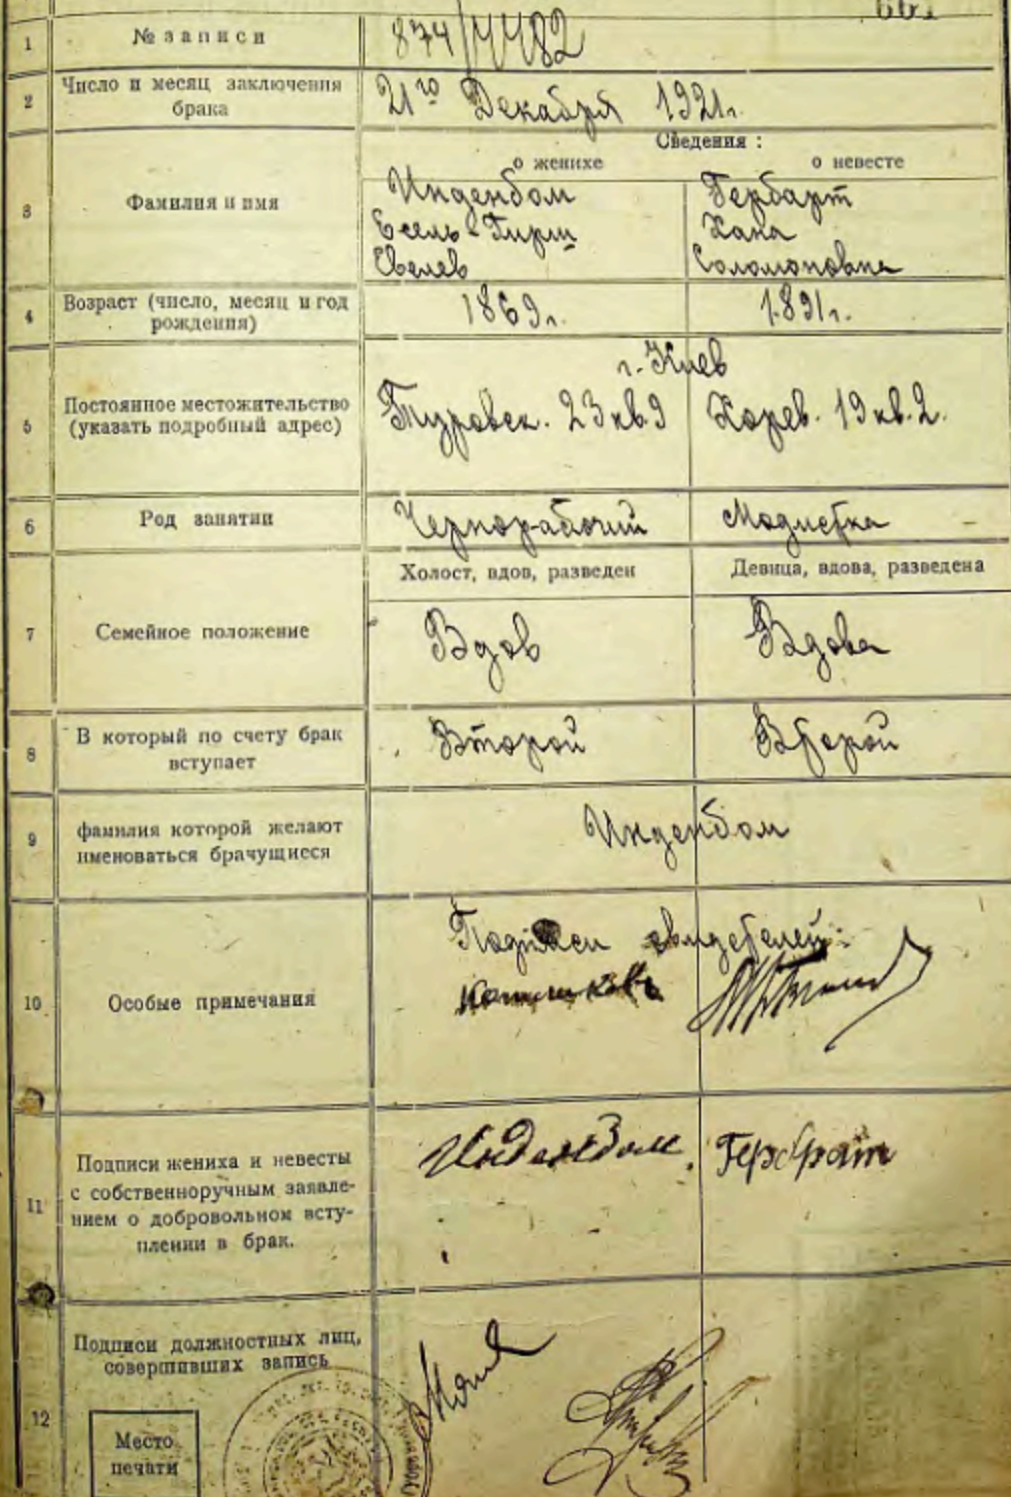 1 № записи 874/4482
2 Число и месяц заключения
брака
21го Декабря 1921г.
Сведения :
о женихе о невесте
3 Фамилия и имя
Инденбом
Есель-Гирш
Евелев
Гербарт
Хана
Соломоновна
4 Возраст (число, месяц и год
рождения)
1869г. 1891г.
5 Постоянное местожительство
(указать подробный адрес)
г. Киев
Туровск. 23 кв. 9 Хорев. 19 кв. 2.
6 Род занятии Чернорабочий Модистка
7 Семейное положение
Холост, вдов, разведен Девица, вдова, разведена
Вдов Вдова
8 В который по счету брак
вступает
Второй Второй
9 фамилия которой желают
именоваться брачущиеся
Инденбом
10 Особые примечания
Подписи свидетелей:
11 Подписи жениха и невесты
с собственноручным заявле-
нием о добровольном всту-
плении в брак.
Инденбом. Герброт
12 Подписи должностных лиц,
совершивших запись
Место
печати